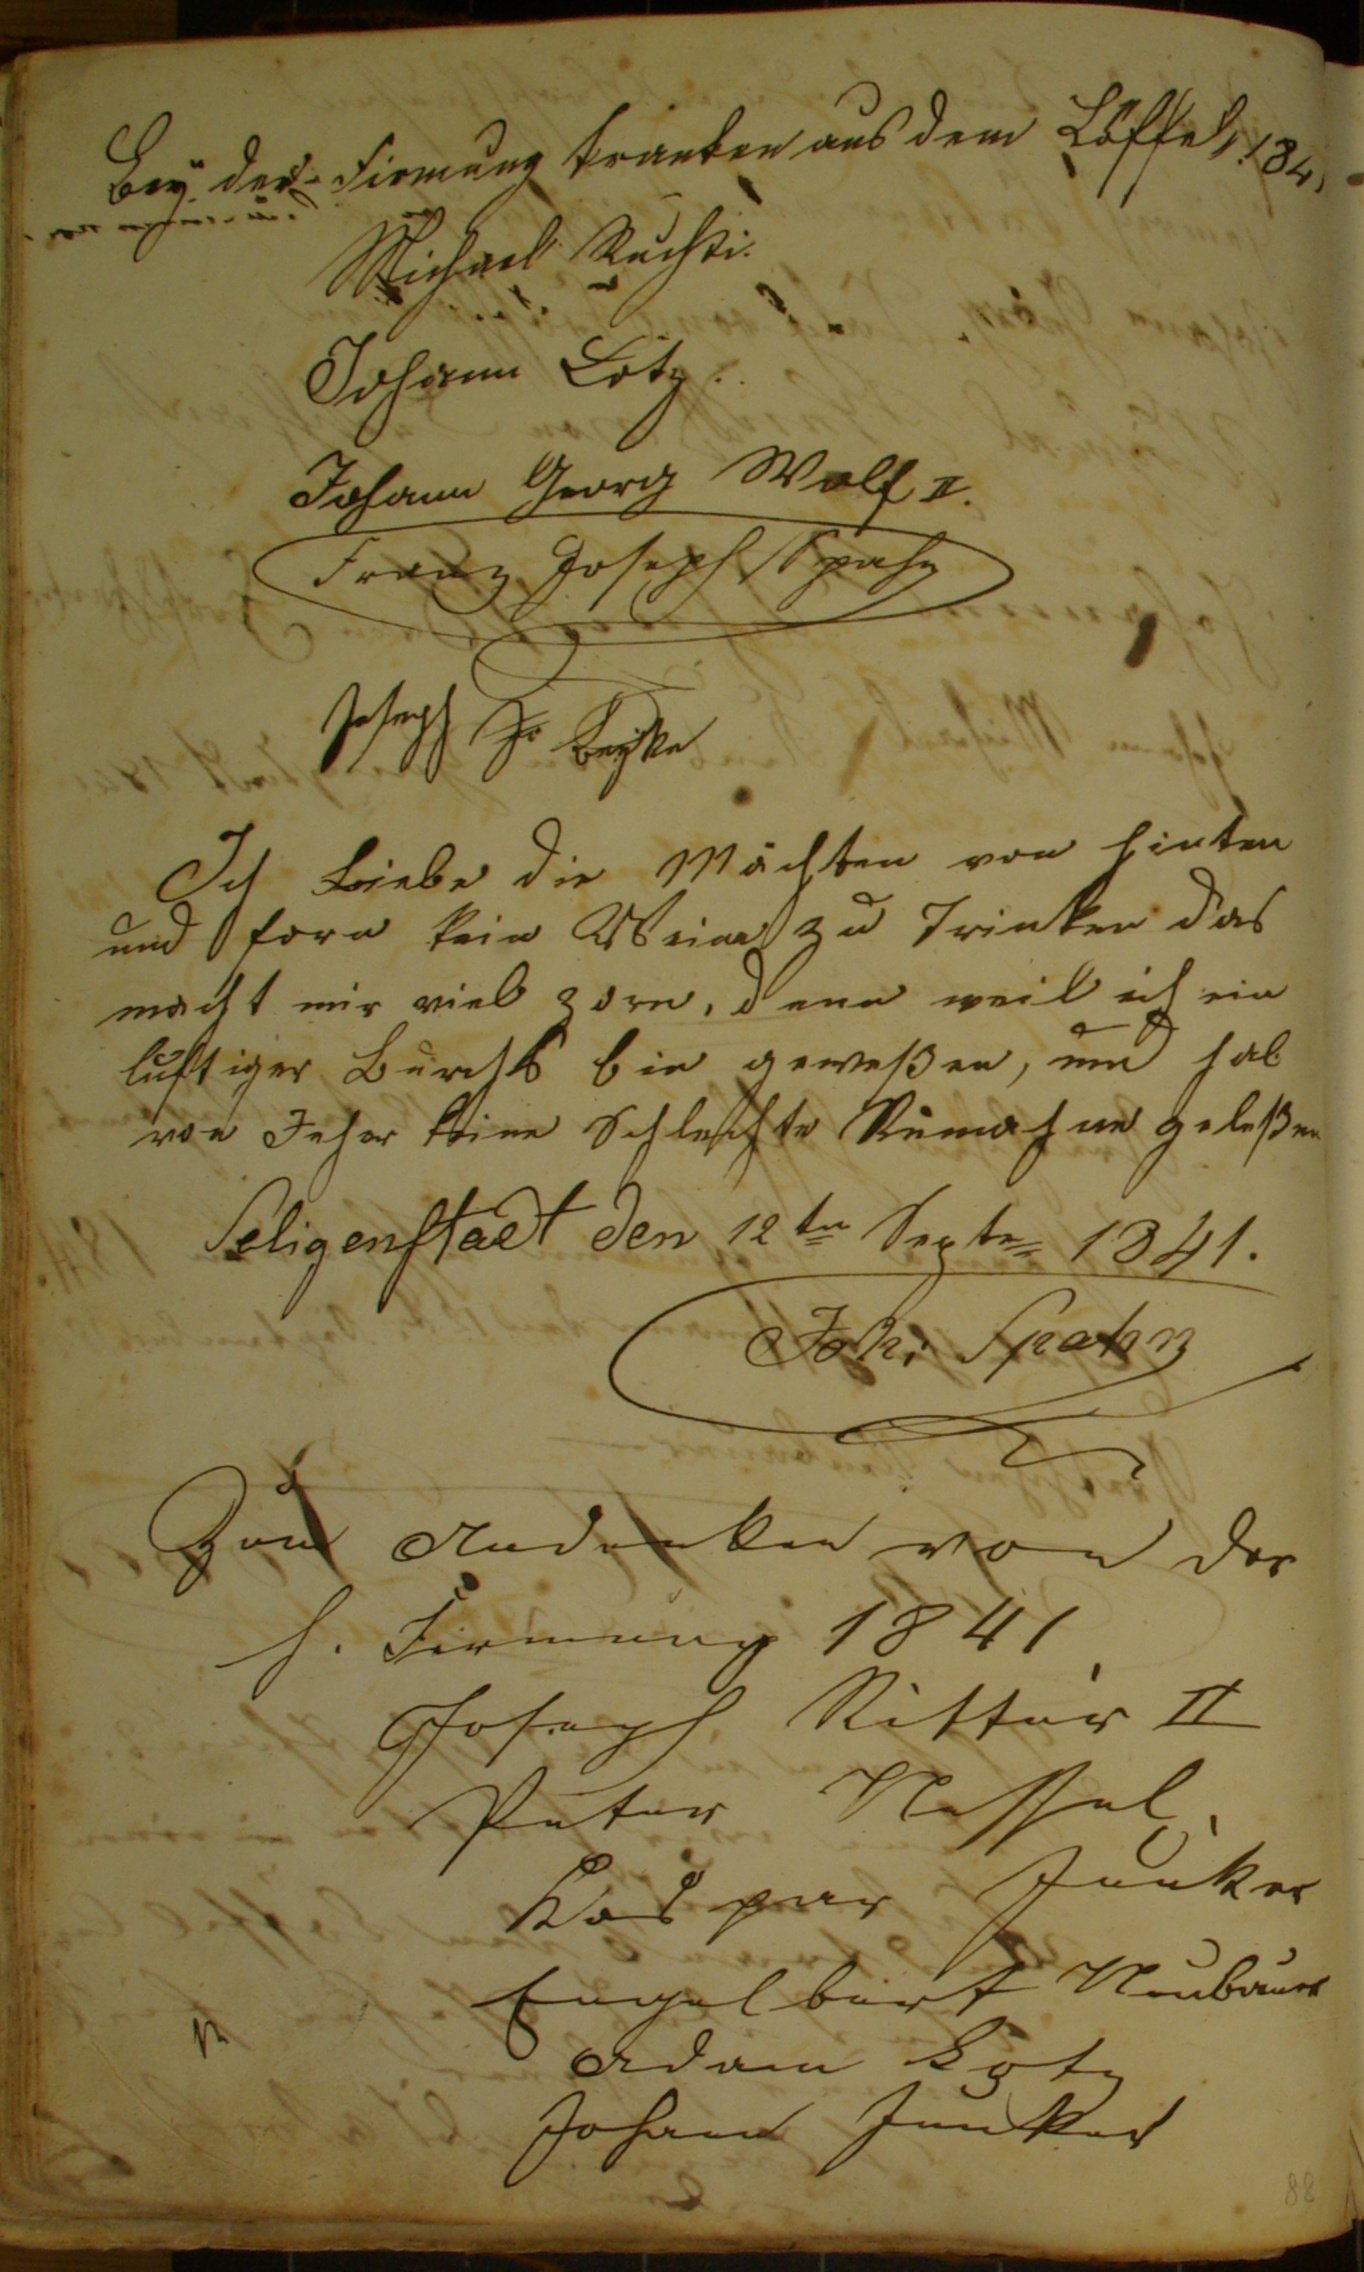 Bey der Firmung tranken aus dem Löffel, 1841
Michael
Johann Lotz.
Johann Georg Wolf II.
Franz Joseph Spahn
Joseph
Ich Liebe die Mächten von hinten
und forn kein Wein zu Trinken das
macht mir viel zorn, denn weil ich ein
lustiger Bursch bin geweßen, und hab
von Jeher keine Schlechte Rumahne geleßen
Seligenstadt den 12ten Septe 1841.
Joh: Spahn
Zum Andenken von der
h. Firmung 1841
Joseph Ritter II
Peter Nessel
Kaspar Junker
Engelbert Neubauer
Adam Lotz
Johann Junker
88